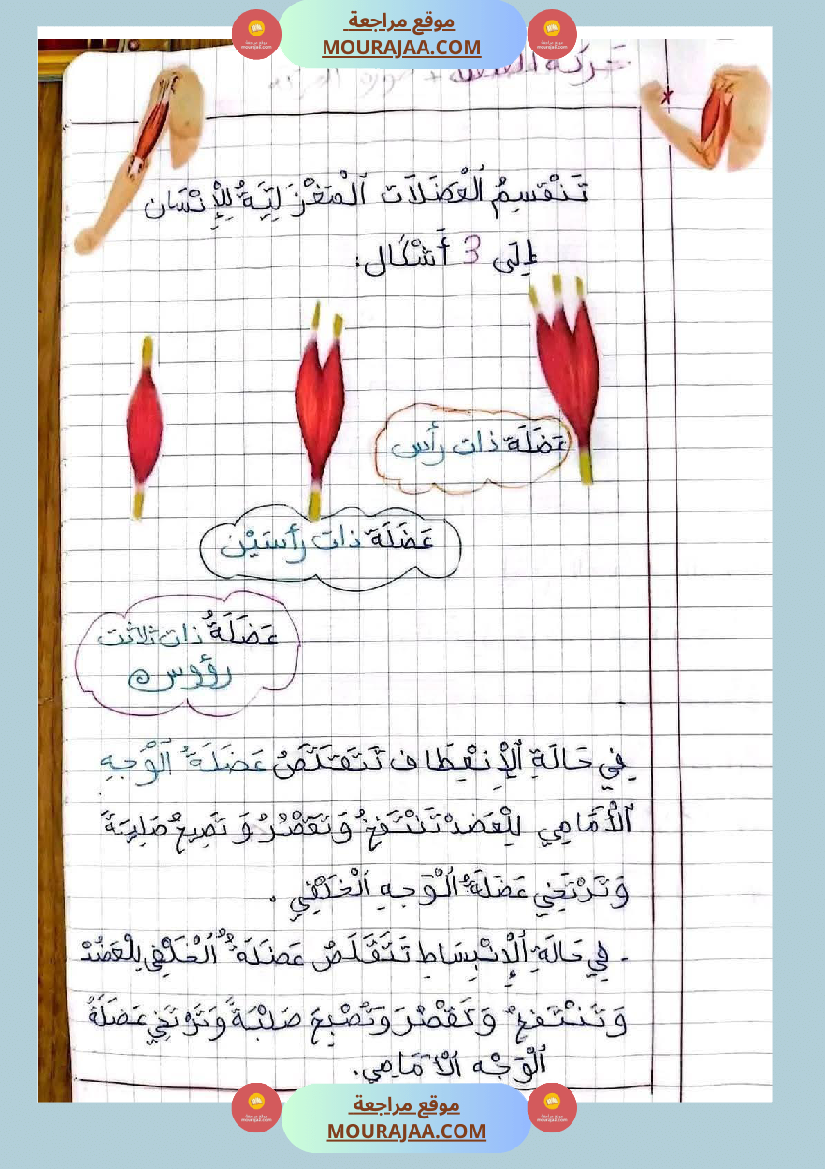 موقع مراجعة
MOURAJAA.COM
تَنْقَسِمُ ٱلْعَضَلَاَت ٱلْمَغْزَلِيَّةُ لِلْإِنْسَان
إِلَى 3 أَشْكَال:
عَضَلَة ذات رأس
عَضَلَة ذات رأسَيْن
عَضَلَةُ ذات ثلاثت
رؤوس
فِي حَالَةِ ٱلْإِنْعِطَاف تَتَقَلَّصُ عَضَلَةُ ٱلْوَجهِ
ٱلْأَمَامِي لِلْعَضد تَنْتَفِخُ وَتَقْصُرُ وَ تَصبِحُ صَلِبَةً
وَتَرْتَخِي عَضَلَةُ ٱلْوَجهِ ٱلْخَلْفِي .
- فِي حَالَةِ ٱلْإِنْبِسَاطِ تَتَقَلَصُ عَضَلَةُ ٱلْخَلْفِي لِلْعَضُدْ
وَتَنْتَفِخُ وَتَقْصُرَ وَتُصْبِحَ صَلْبَةً وَتَرْتَخِي عَضَلَةُ
ٱلْوَجْه ٱلْأَمَامِي.
موقع مراجعة
MOURAJAA.COM